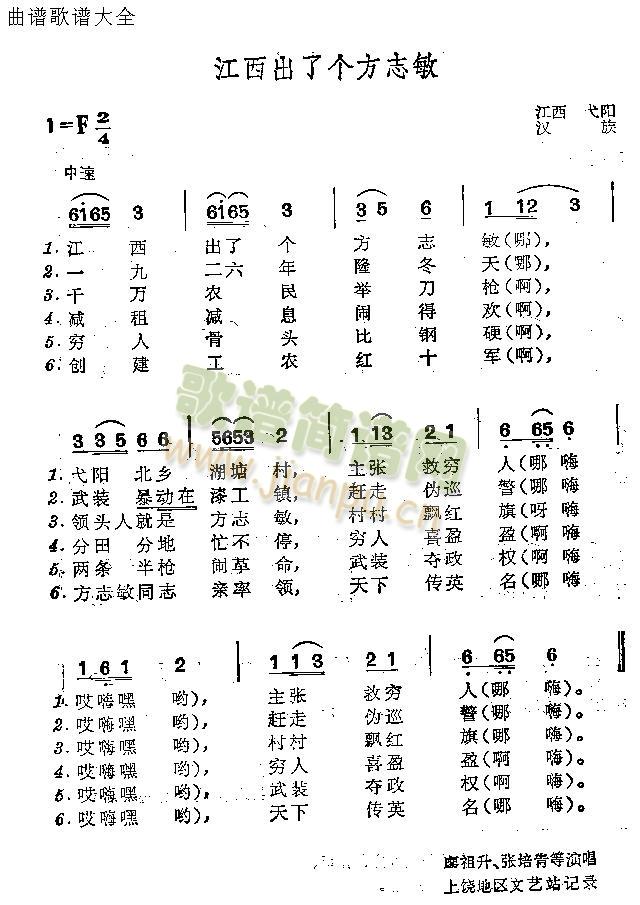 曲谱歌谱大全
江西出了个方志敏
1=F 2/4
江西 弋阳
汉 族
中速
6i65 3 | 6i65 3 | 3 5 6 | 1 12 3 |
1.江 西 出了 个 方 志 敏(哪),
2.一 九 二六 年 隆 冬 天(哪),
3.千 万 农 民 举 刀 枪(啊),
4.减 租 减 息 闹 得 欢(啊),
5.穷 人 骨 头 比 钢 硬(啊),
6.创 建 工 农 红 十 军(啊),
3 3 5 6 6 | 5653 2 | 1 13 2 1 | 6 65 6 |
1.弋阳 北乡 湖塘 村, 主张 救穷 人(哪 嗨
2.武装 暴动在 漆工 镇, 赶走 伪巡 警(哪 嗨
3.领头人就是 方志 敏, 村村 飘红 旗(呀 嗨
4.分田 分地 忙不 停, 穷人 喜盈 盈(啊 嗨
5.两条 半枪 闹革 命, 武装 夺政 权(啊 嗨
6.方志敏同志 亲率 领, 天下 传英 名(哪 嗨
1 6 1 2 | 1 1 3 2 1 | 6 65 6 ‖
1.哎嗨嘿 哟), 主张 救穷 人(哪 嗨)。
2.哎嗨嘿 哟), 赶走 伪巡 警(哪 嗨)。
3.哎嗨嘿 哟), 村村 飘红 旗(哪 嗨)。
4.哎嗨嘿 哟), 穷人 喜盈 盈(啊 嗨)。
5.哎嗨嘿 哟), 武装 夺政 权(啊 嗨)。
6.哎嗨嘿 哟), 天下 传英 名(哪 嗨)。
祖升、张培青等演唱
上饶地区文艺站记录
歌谱简谱网
www.jianpu.cn